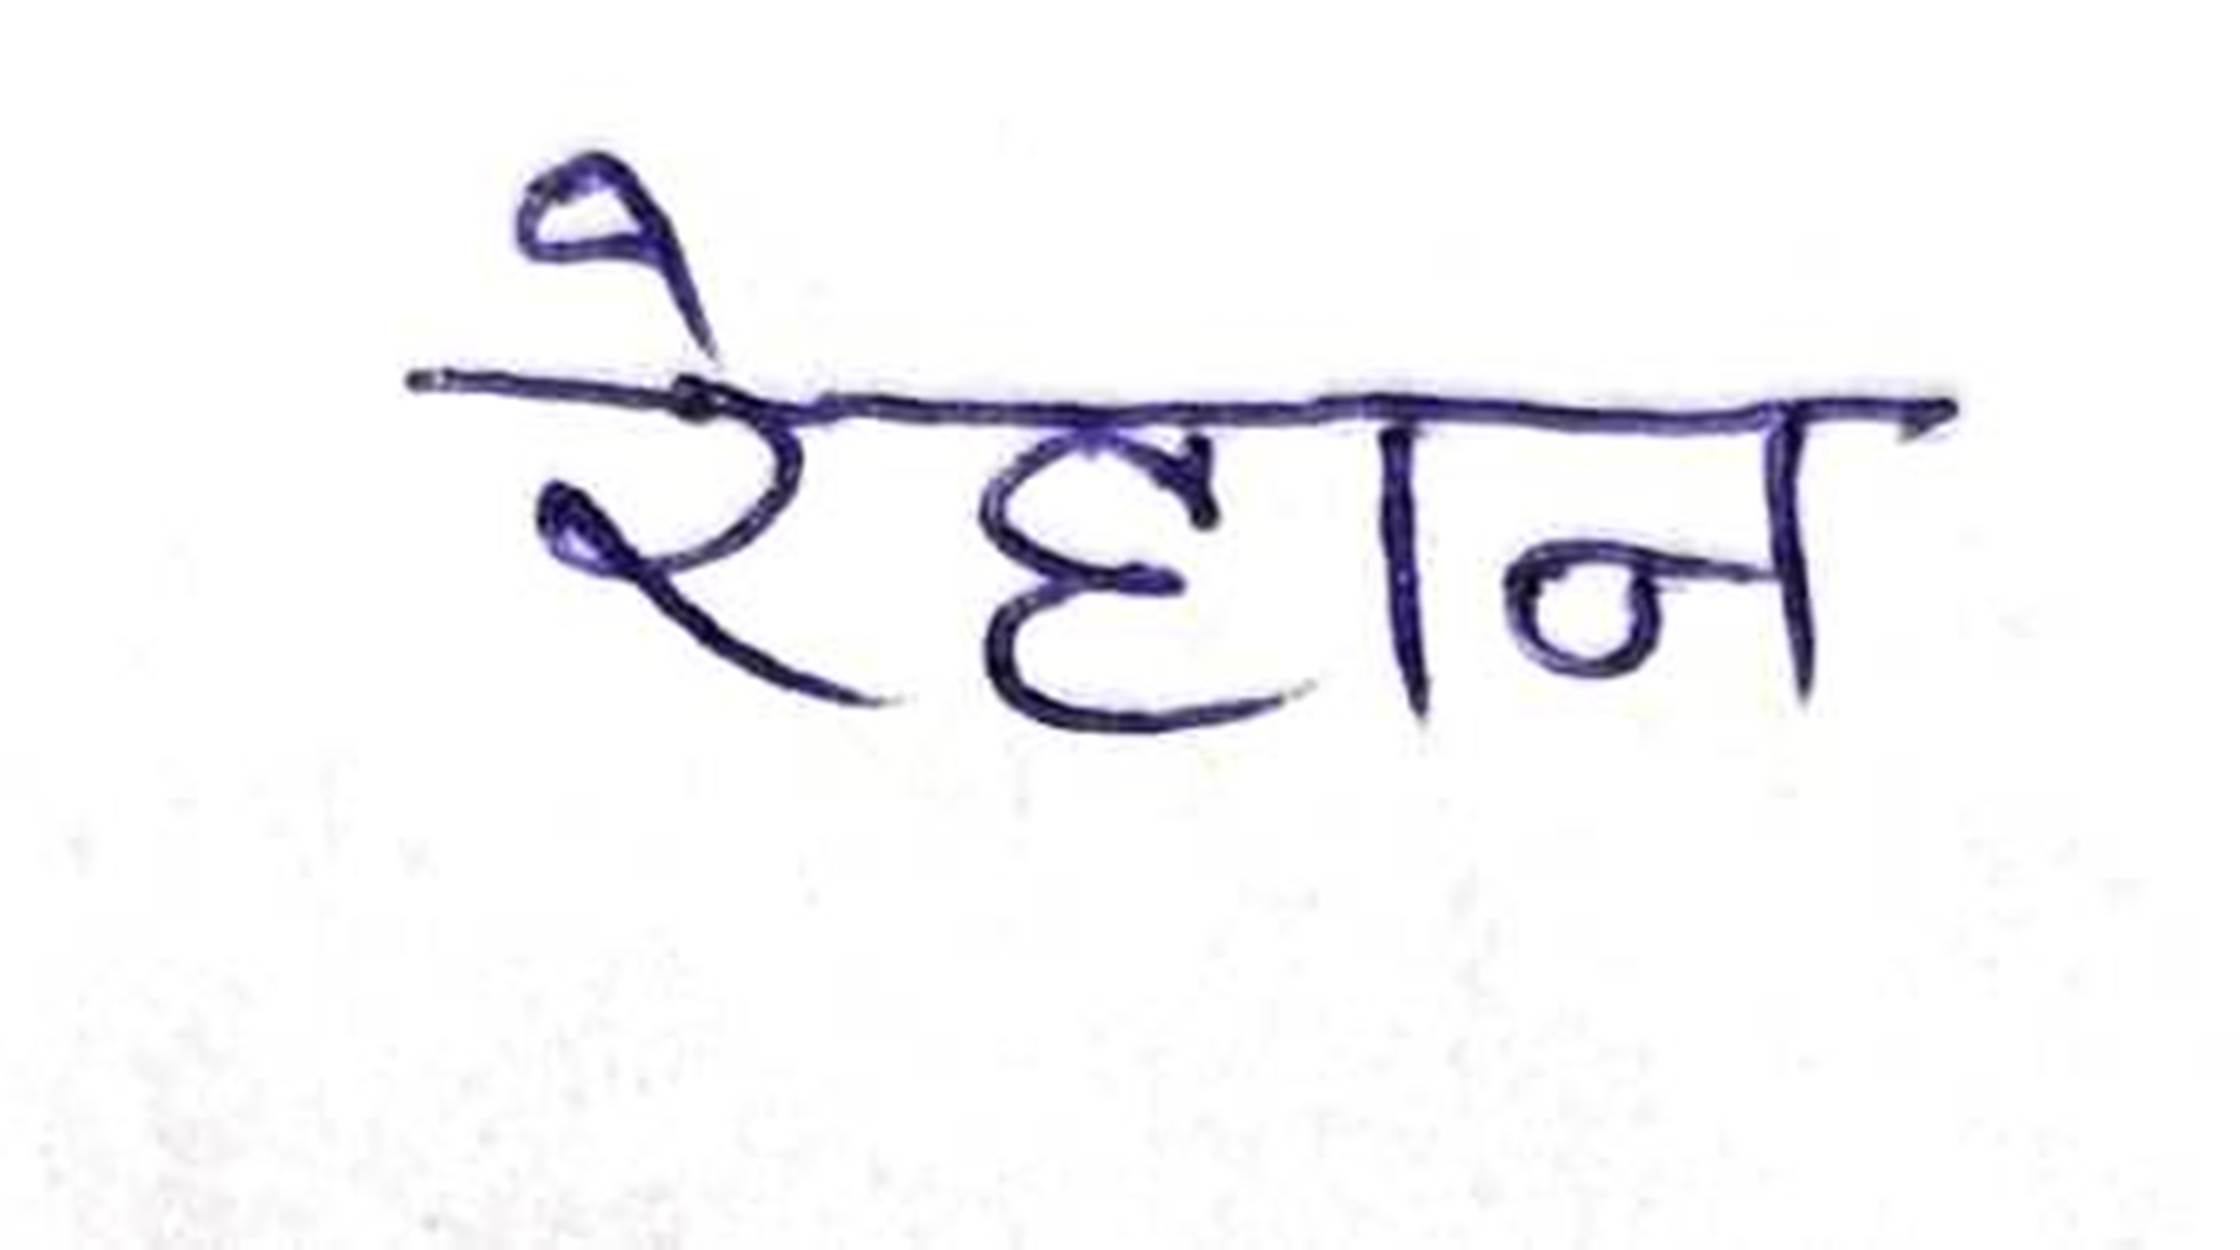 रेहान